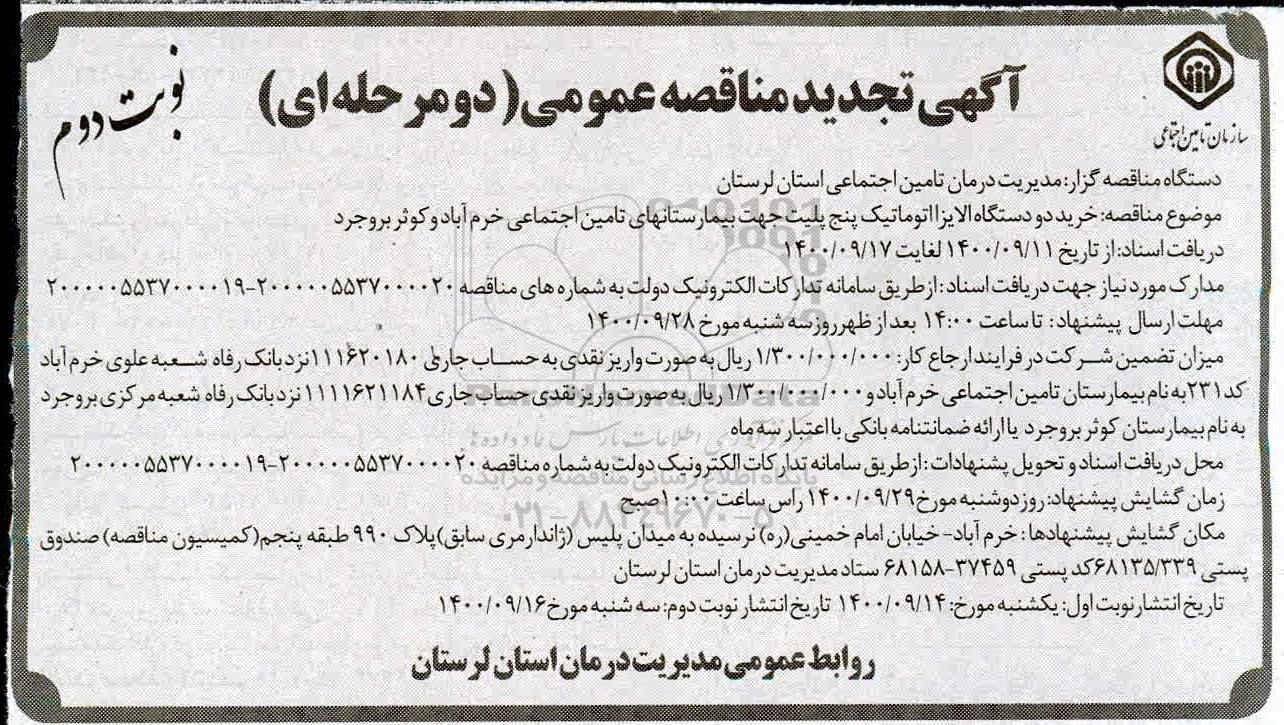 سازمان تامین اجتماعی
آگهی تجدید مناقصه عمومی (دو مرحله ای)
نوبت دوم
دستگاه مناقصه گزار: مدیریت درمان تامین اجتماعی استان لرستان
موضوع مناقصه: خرید دو دستگاه الایزا اتوماتیک پنج پلیت جهت بیمارستانهای تامین اجتماعی خرم آباد و کوثر بروجرد
دریافت اسناد: از تاریخ ۱۴۰۰/۰۹/۱۱ لغایت ۱۴۰۰/۰۹/۱۷
مدارک مورد نیاز جهت دریافت اسناد: از طریق سامانه تدارکات الکترونیک دولت به شماره های مناقصه ۲۰۰۰۰۰۵۵۳۷۰۰۰۰۲۰-۲۰۰۰۰۰۵۵۳۷۰۰۰۰۱۹
مهلت ارسال پیشنهاد: تا ساعت ۱۴:۰۰ بعد از ظهر روز سه شنبه مورخ ۱۴۰۰/۰۹/۲۸
میزان تضمین شرکت در فرایند ارجاع کار: ۱/۳۰۰/۰۰۰/۰۰۰ ریال به صورت واریز نقدی به حساب جاری ۱۱۱۶۲۰۱۸۰ نزد بانک رفاه شعبه علوی خرم آباد
کد ۲۳۱ به نام بیمارستان تامین اجتماعی خرم آباد و ۱/۳۰۰/۰۰۰/۰۰۰ ریال به صورت واریز نقدی حساب جاری ۱۱۱۱۶۲۱۱۸۴ نزد بانک رفاه شعبه مرکزی بروجرد
به نام بیمارستان کوثر بروجرد یا ارائه ضمانتنامه بانکی با اعتبار سه ماه
محل دریافت اسناد و تحویل پشنهادات: از طریق سامانه تدارکات الکترونیک دولت به شماره مناقصه ۲۰۰۰۰۰۵۵۳۷۰۰۰۰۲۰-۲۰۰۰۰۰۵۵۳۷۰۰۰۰۱۹
زمان گشایش پیشنهاد: روز دوشنبه مورخ ۱۴۰۰/۰۹/۲۹ راس ساعت ۱۰:۰۰ صبح
مکان گشایش پیشنهادها: خرم آباد- خیابان امام خمینی(ره) نرسیده به میدان پلیس (ژاندارمری سابق) پلاک ۹۹۰ طبقه پنجم(کمیسیون مناقصه) صندوق
پستی ۶۸۱۳۵/۳۳۹ کد پستی ۳۷۴۵۹-۶۸۱۵۸ ستاد مدیریت درمان استان لرستان
تاریخ انتشار نوبت اول: یکشنبه مورخ: ۱۴۰۰/۰۹/۱۴ تاریخ انتشار نوبت دوم: سه شنبه مورخ ۱۴۰۰/۰۹/۱۶
روابط عمومی مدیریت درمان استان لرستان
پایگاه اطلاع رسانی مناقصه و مزایده
۰۲۱-۸۸۳۴۹۶۷۰-۵